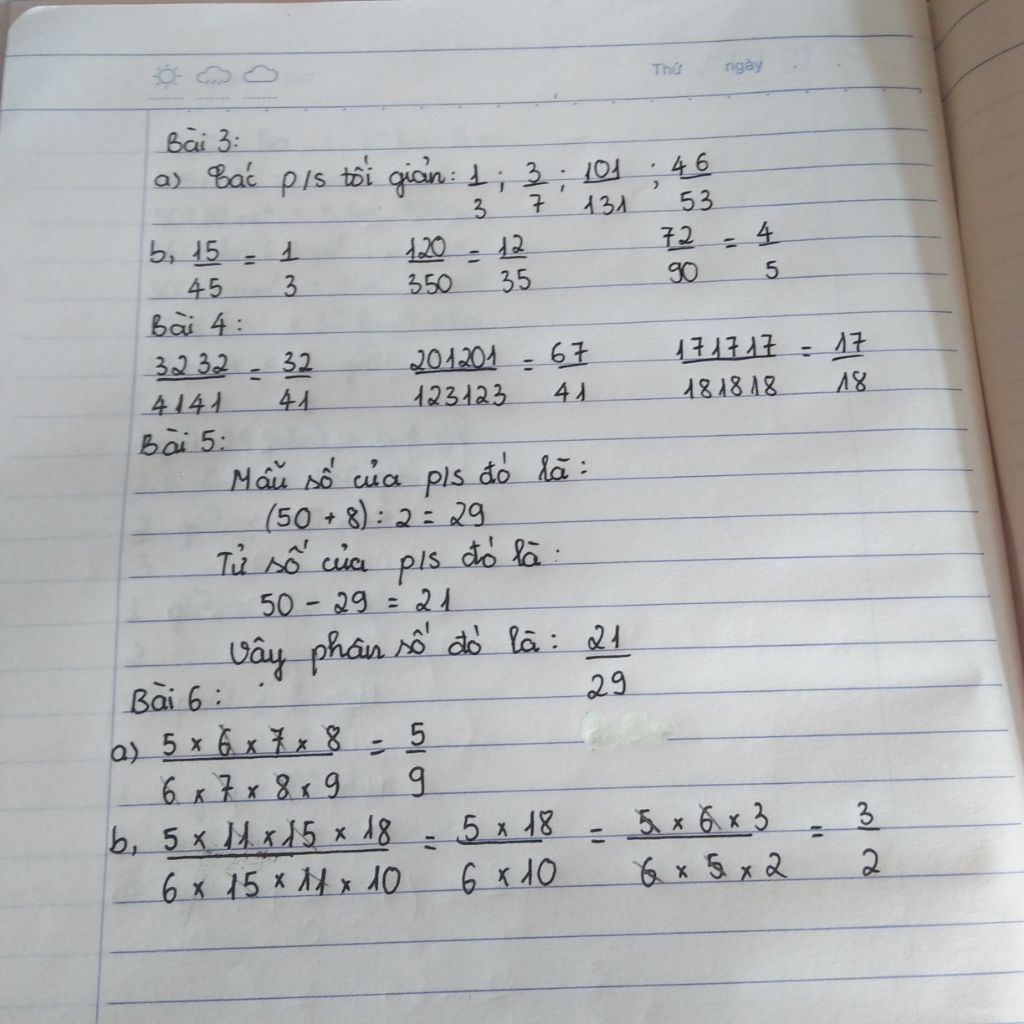 Thứ ngày
Bài 3:
a) Các p/s tối giản: 1/3 ; 3/7 ; 101/131 ; 46/53
b, 15/45 = 1/3 120/350 = 12/35 72/90 = 4/5
Bài 4:
3232/4141 = 32/41 201201/123123 = 67/41 171717/181818 = 17/18
Bài 5:
Mẫu số của p/s đó là:
(50 + 8) : 2 = 29
Tử số của p/s đó là:
50 - 29 = 21
Vây phân số đó là: 21/29
Bài 6:
a) 5 × 6 × 7 × 8 / 6 × 7 × 8 × 9 = 5/9
b, 5 × 11 × 15 × 18 / 6 × 15 × 11 × 10 = 5 × 18 / 6 × 10 = 5 × 6 × 3 / 6 × 5 × 2 = 3/2